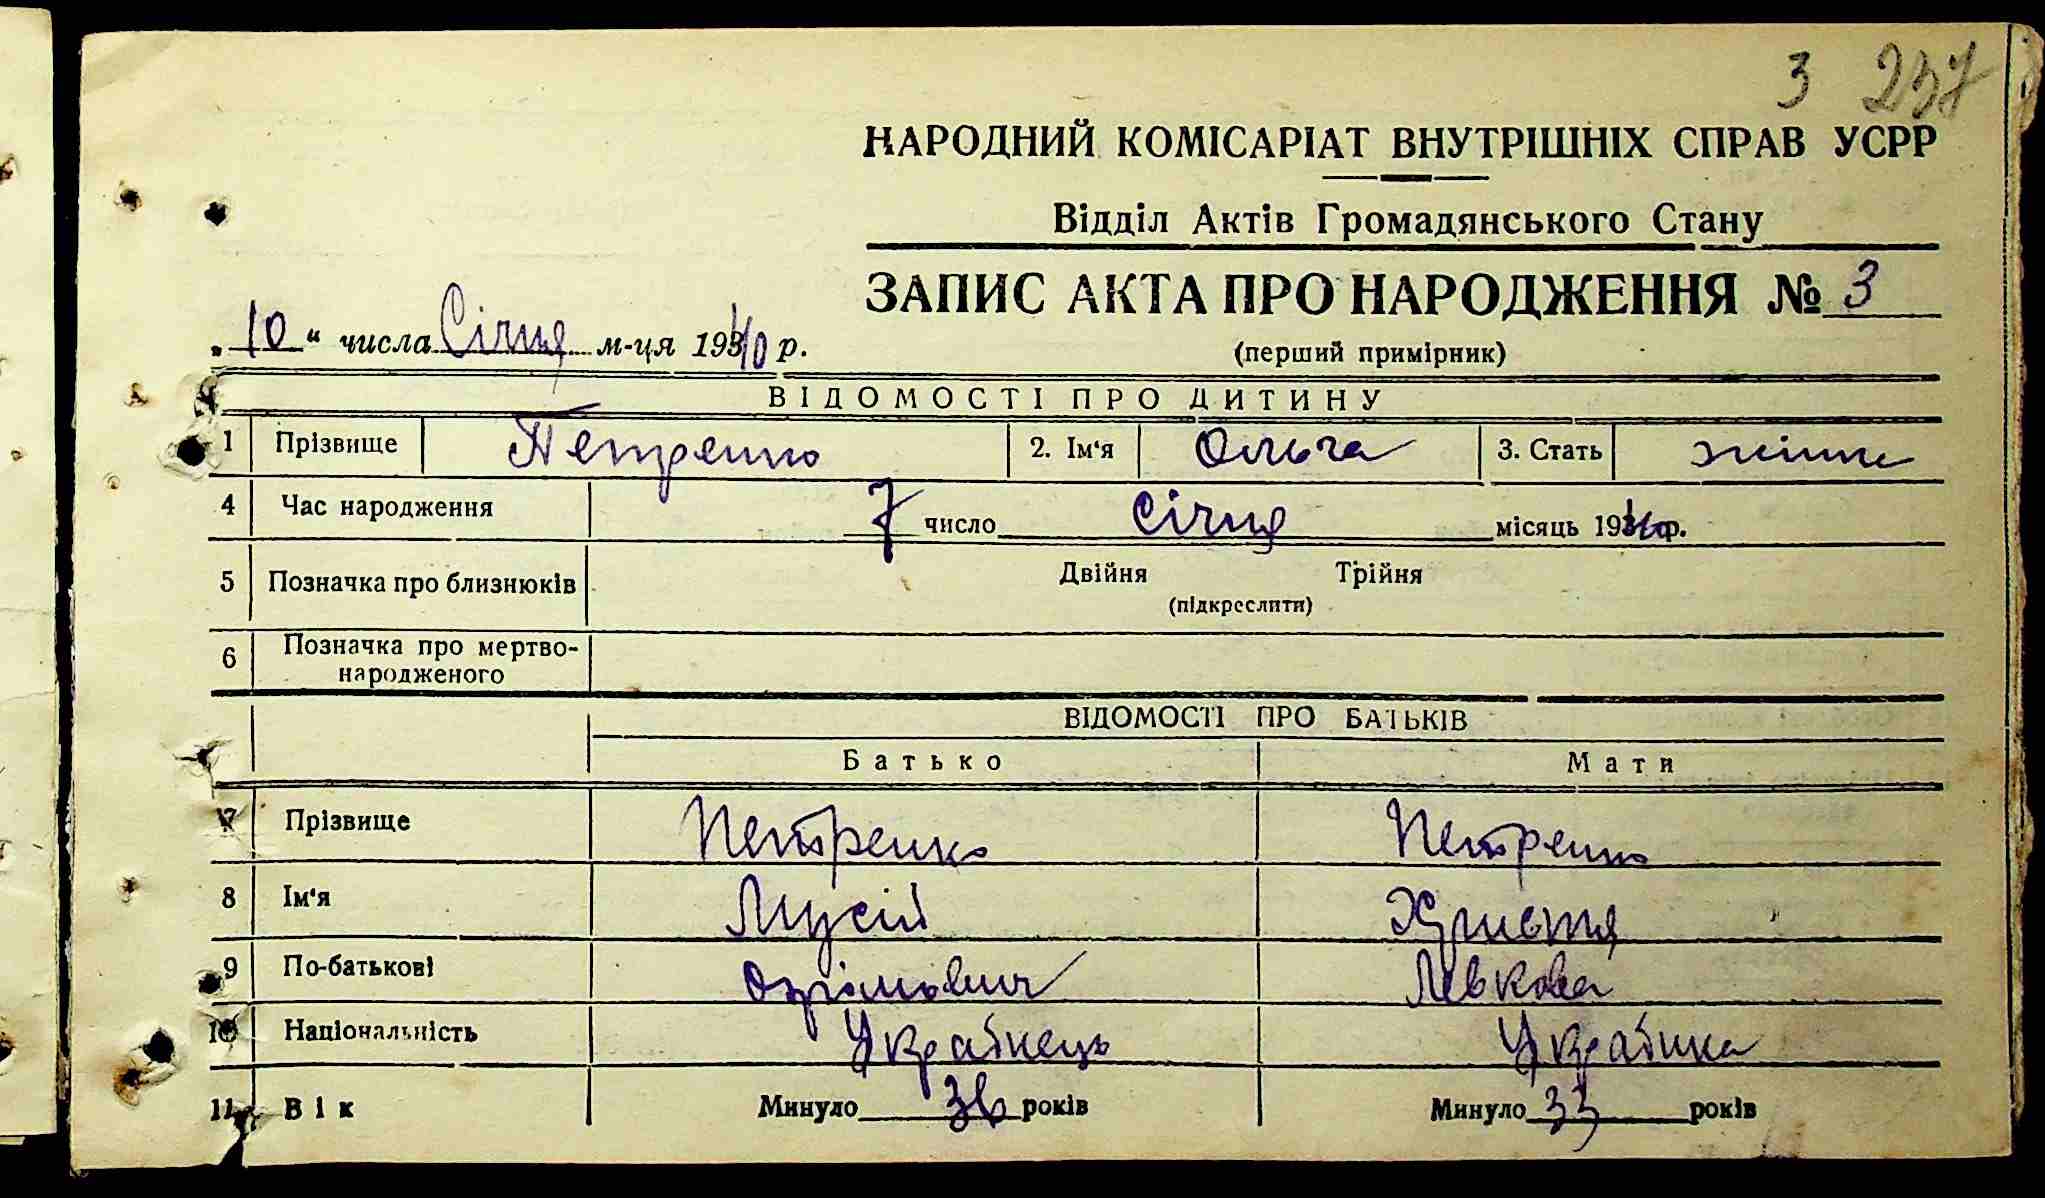 3 237
НАРОДНИЙ КОМІСАРІАТ ВНУТРІШНІХ СПРАВ УСРР
Відділ Актів Громадянського Стану
ЗАПИС АКТА ПРО НАРОДЖЕННЯ № 3
„10“ числа Січня м-ця 1940 р.
(перший примірник)
ВІДОМОСТІ ПРО ДИТИНУ
1 Прізвище Петренко 2. Ім'я Ольга 3. Стать жіноч
4 Час народження 7 число Січня місяць 1940 р.
5 Позначка про близнюків Двійня Трійня
(підкреслити)
6 Позначка про мертво-
народженого
ВІДОМОСТІ ПРО БАТЬКІВ
Батько Мати
7 Прізвище Петренко Петренко
8 Ім'я Мусій Христя
9 По-батькові Левкова
10 Національність Українець Українка
11 Вік Минуло 36 років Минуло 33 років